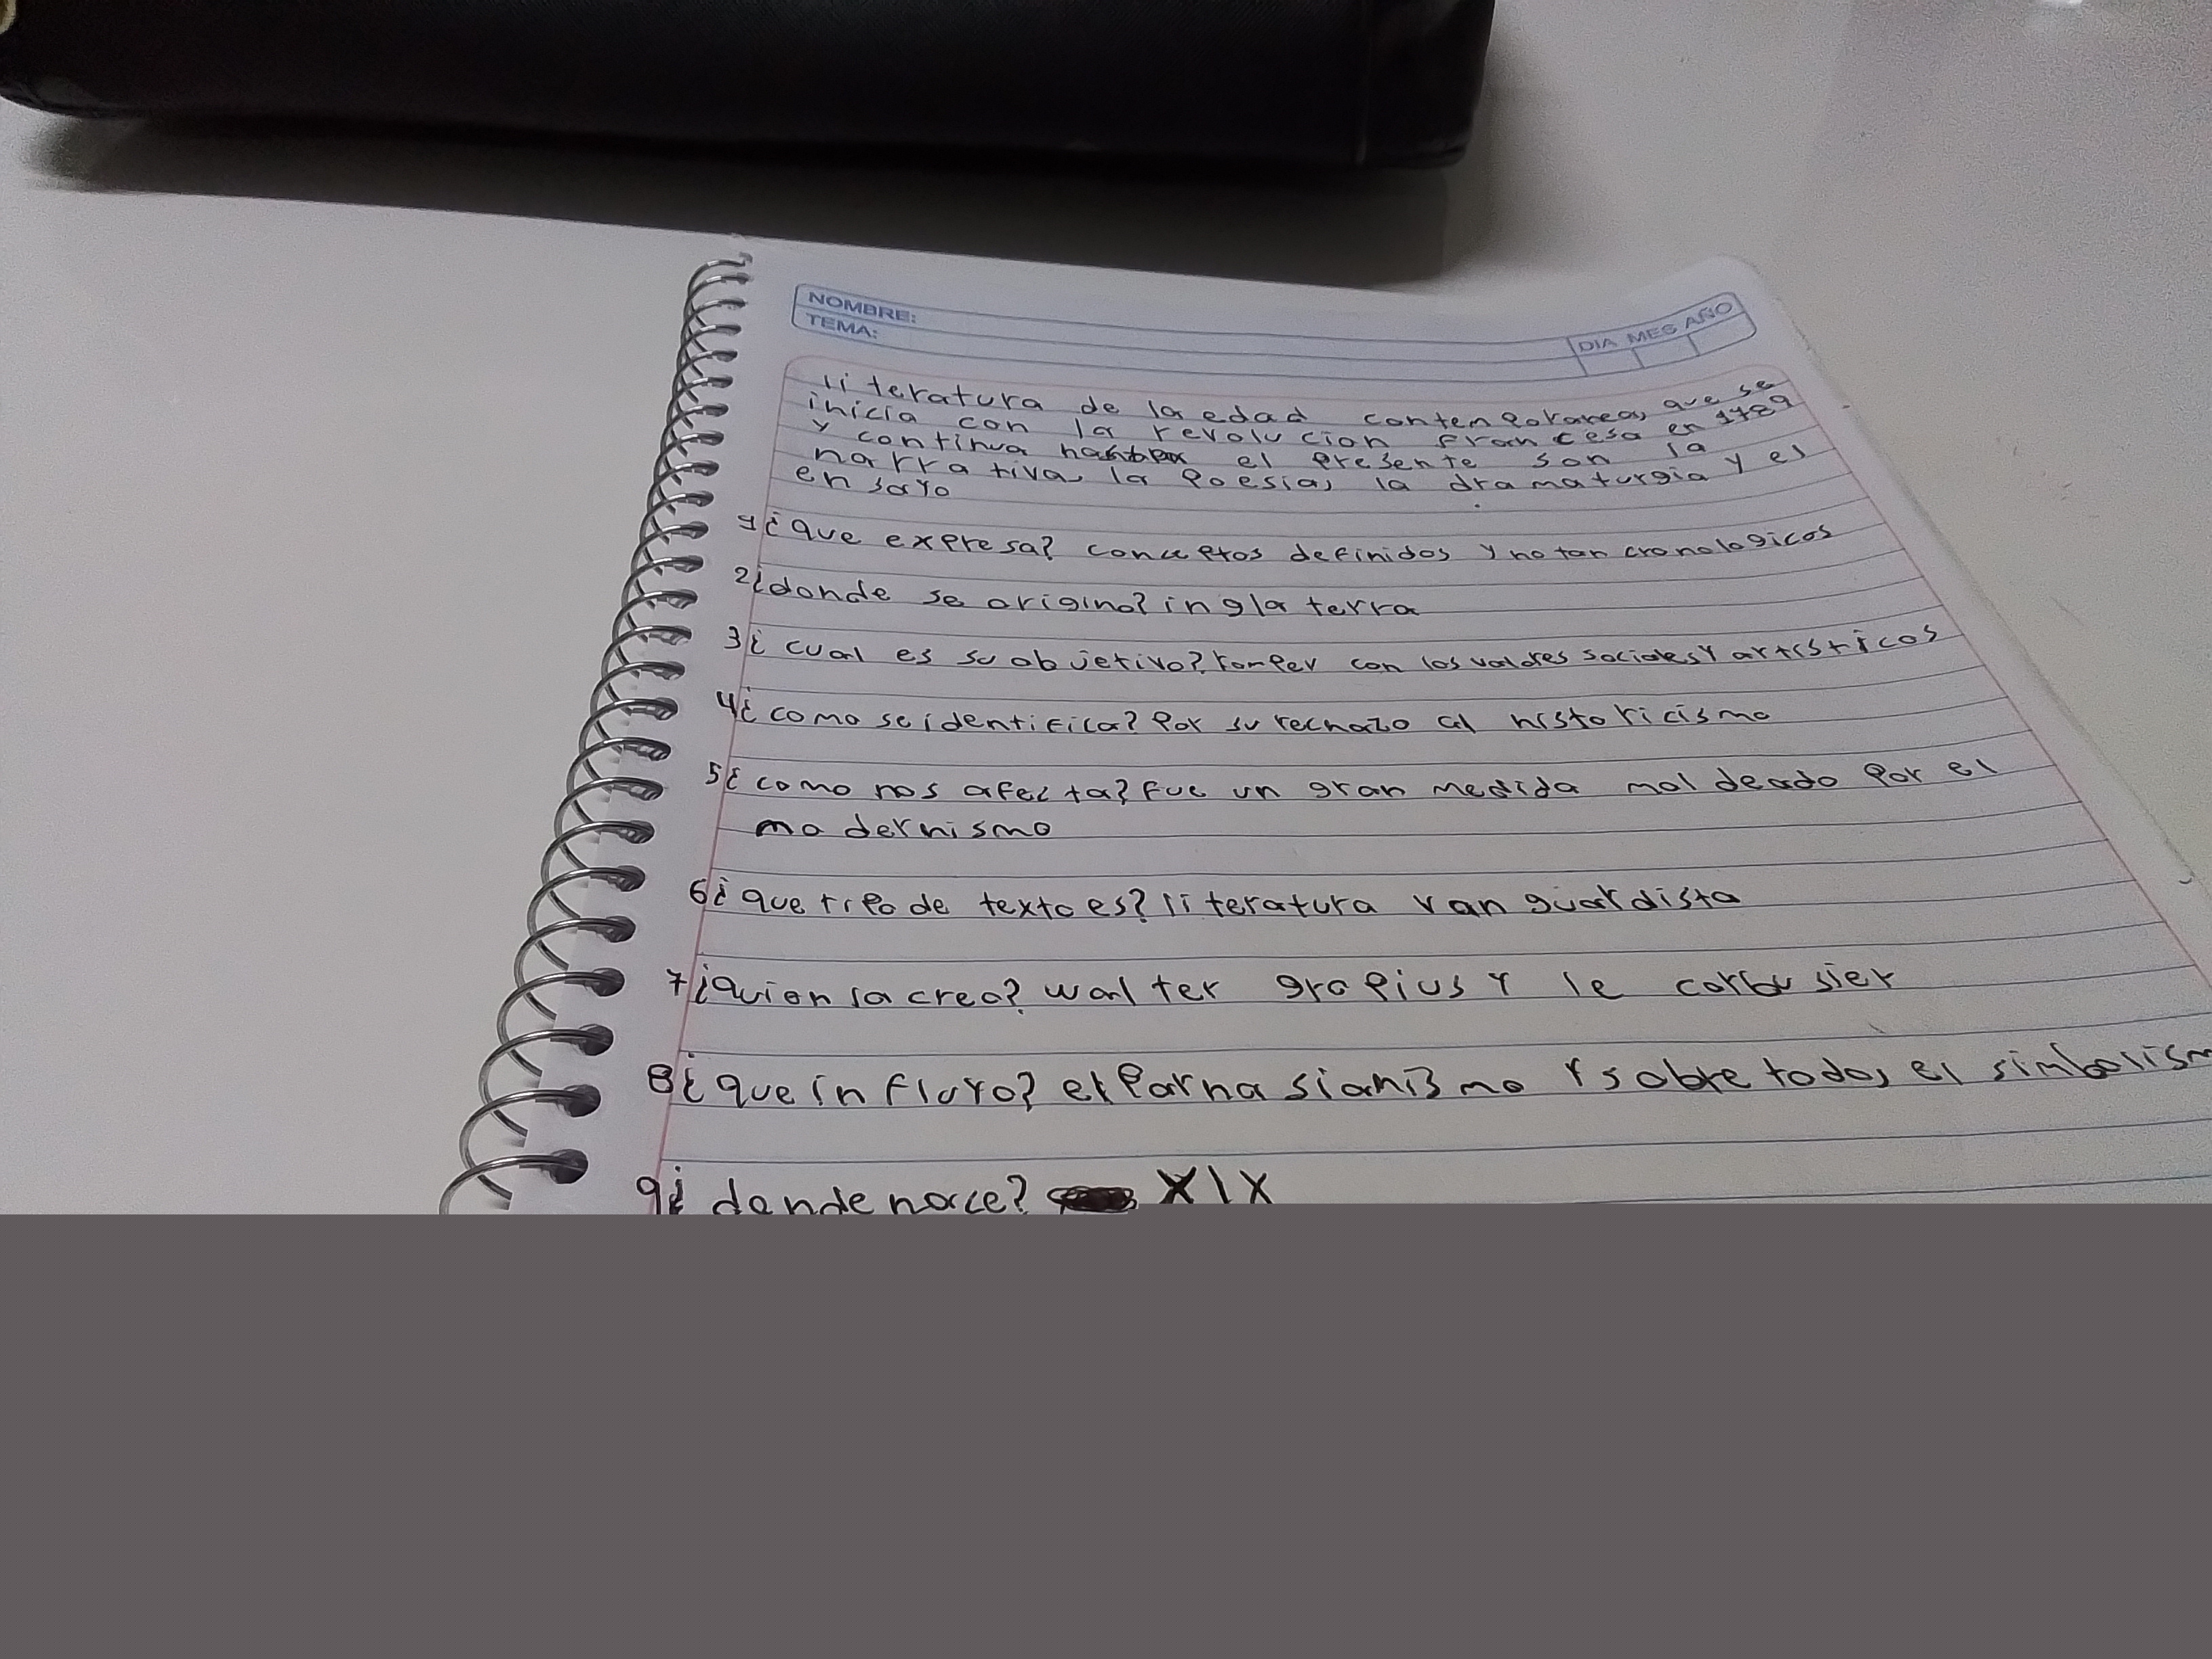 NOMBRE:
TEMA:
DIA MES AÑO
literatura de la edad contemporanea, que se
inicia con la revolucion francesa en 1789
y continua hasta el presente son la
narrativa, la poesia, la dramaturgia y el
ensayo
1¿que expresa? conceptos definidos y no tan cronologicos
2¿donde se origino? inglaterra
3¿cual es su objetivo? romper con los valores sociales y artistricos
4¿como se identifica? por su rechazo al historicismo
5¿como nos afecta? fue un gran medida moldeado por el
modernismo
6¿que tipo de texto es? literatura vanguardista
7¿quien la creo? walter gropius y le corbusier
8¿que influyo? el parnasianismo y sobre todo, el simbolism
9¿donde nace? XIX